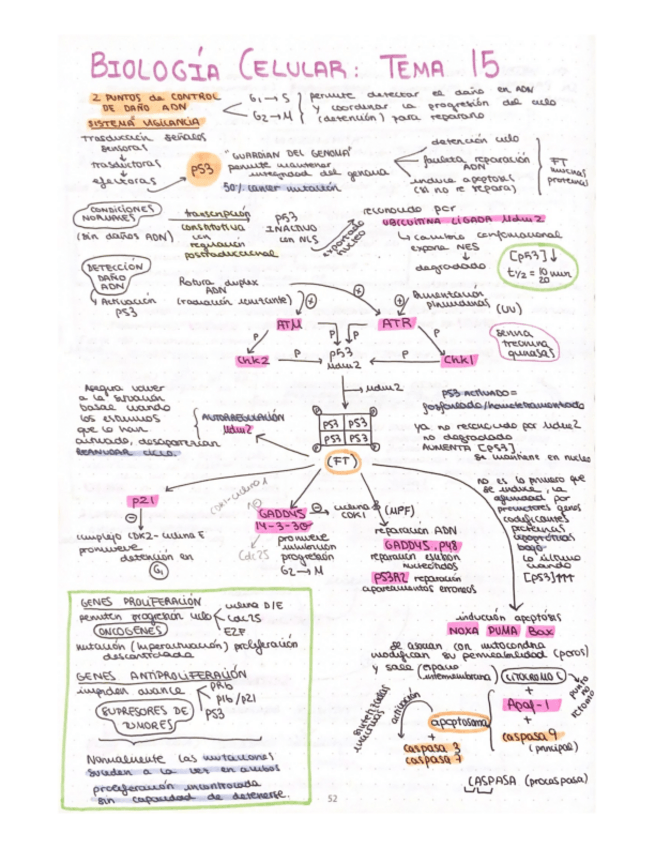 BIOLOGÍA CELULAR: TEMA 15
2 PUNTOS de CONTROL
DE DAÑO ADN
SISTEMA VIGILANCIA
G1→S
G2→M
permite detectar el daño en ADN
y coordinar la progresión del ciclo
(detención) para repararlo
Trasducción señales
sensoras
↓
trasductoras
↓
efectoras
P53
"GUARDIAN DEL GENOMA"
permite mantener
integridad del genoma
50% cancer mutación
detención ciclo
facilita reparación
ADN
induce apoptosis
(si no se repara)
FT
muchas
proteínas
CONDICIONES
NORMALES
(sin daños ADN)
transcripción
constitutiva
con
regulación
postraduccional
p53
INACTIVO
con NLS
exportado
núcleo
reconocido por
UBICUITINA LIGADA Mdm2
↳ cambio conformacional
expone NES
↓
degradado
[p53]↓
t1/2 = 10/20 min
DETECCIÓN
DAÑO
ADN
↳ Activación
P53
Rotura duplex
ADN
(radiación ionizante)
(UV)
ATM
ATR
P
P
P
P
Chk2
P
p53
Mdm2
P
Chk1
serina
treonina
quinasas
→Mdm2
Asegura volver
a la situación
basal cuando
los estímulos
que lo han
activado, desaparecían
REANUDAR CICLO.
AUTORREGULACIÓN
Mdm2
P53 P53
P53 P53
(FT)
P53 ACTIVADO =
fosforilado/homotetramerizado
ya no reconocido por Mdm2
no degradado
AUMENTA [P53]
se mantiene en núcleo
no es lo primero que
se induce, la
afinidad por
promotores genes
codificantes
proteínas
apoptóticas
baja
lo último
cuando
[P53]↑↑↑
p21
⊖
complejo CDK2-ciclina E
promueve
detención en
G1
GADD45
14-3-3σ
Cdc25
promueve
inhibición
progresión
G2→M
⊖ ciclina
CDK1
(MPF)
reparación ADN
GADD45, P48
reparación escisión
nucleótidos
P53R2 reparación
apareamientos erróneos
inducción apoptosis
NOXA PUMA Bax
se asocian con mitocondria
modifican su permeabilidad (poros)
y sale (espacio
intermembrana)
CITOCROMO C
+
Apaf-1
+
caspasa 9
(principal)
activación
apoptosoma
+
caspasa 3
caspasa 7
CASPASA (procaspasa)
GENES PROLIFERACIÓN
permiten progresión ciclo
ciclina D/E
Cdc25
E2F
ONCOGENES
mutación (hiperactivación) proliferación
descontrolada
GENES ANTIPROLIFERACIÓN
impiden avance
pRb
P16/p21
P53
SUPRESORES DE
TUMORES
Normalmente las mutaciones
suelen a la vez en ambos
proliferación incontrolada
sin capacidad de detenerse.
52